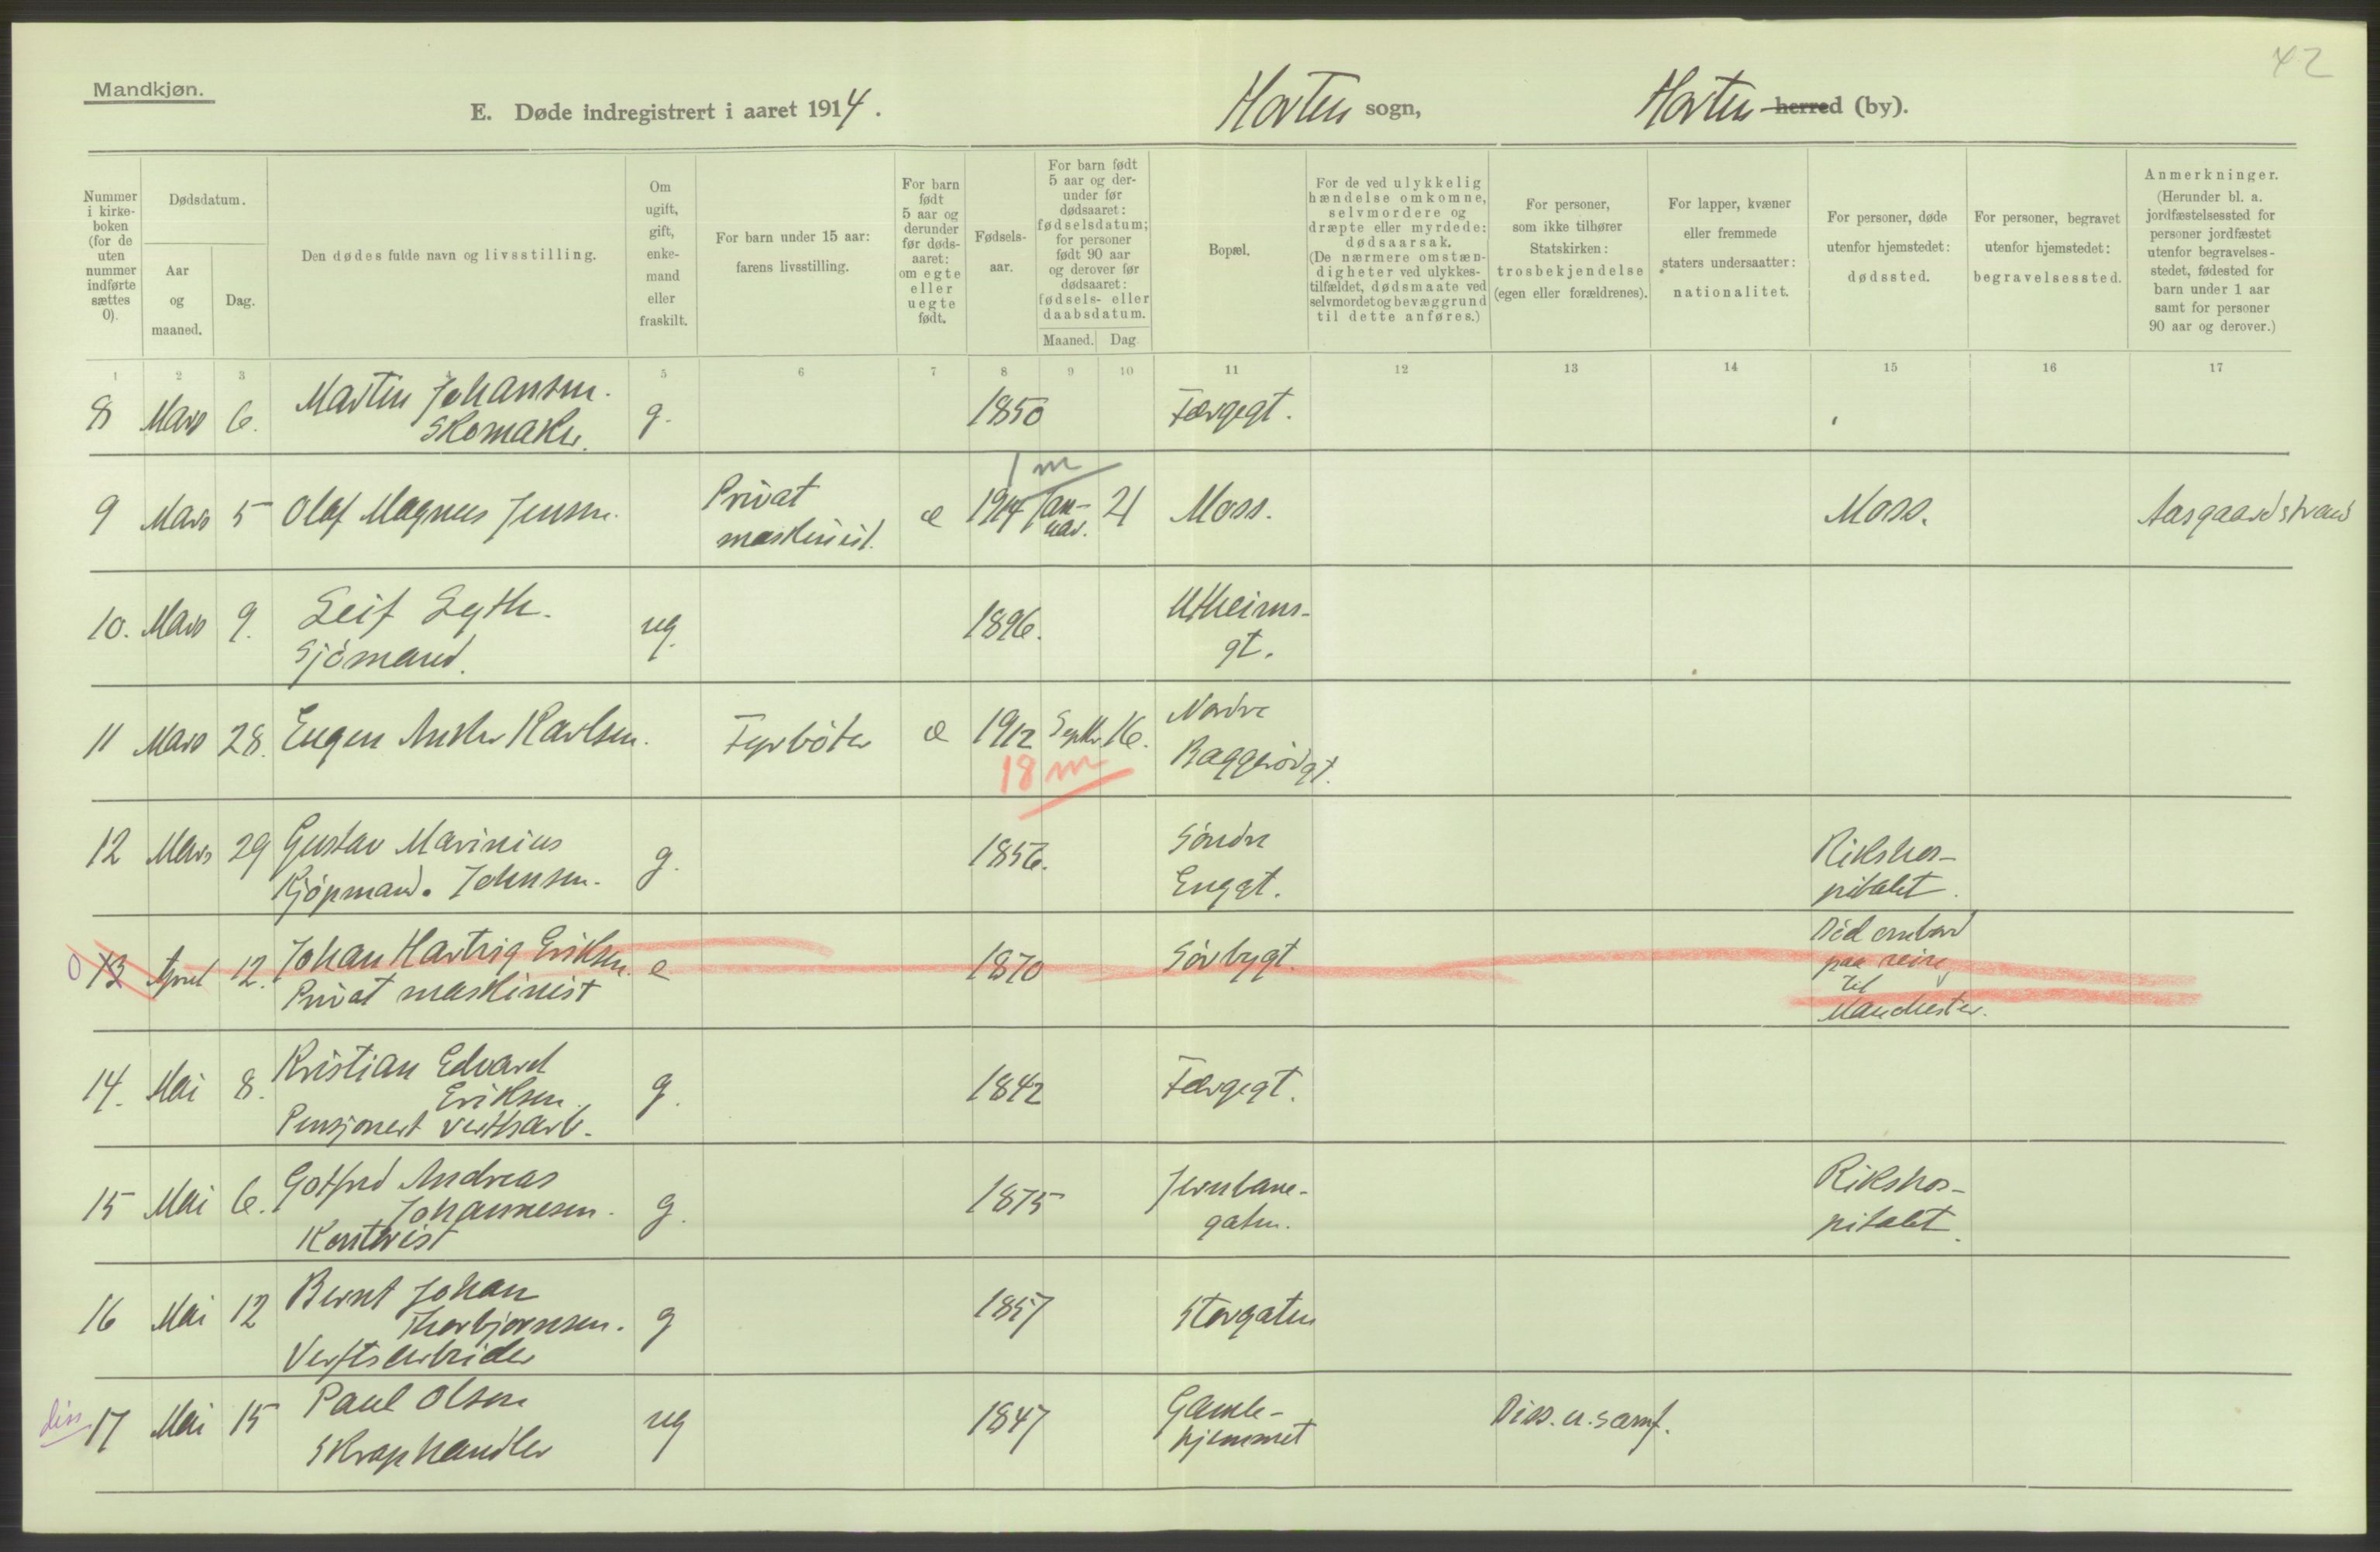 42
Mandkjøn.
E. Døde indregistrert i aaret 1914.
Horten sogn,
Horten herred (by).
Nummer i kirke-boken (for de uten nummer indførte sættes 0).
Dødsdatum.
Aar og maaned.
Dag.
Den dødes fulde navn og livsstilling.
Om ugift, gift, enke-mand eller fraskilt.
For barn under 15 aar: farens livsstilling.
For barn født 5 aar og derunder før døds-aaret: om egte eller uegte født.
Fødsels-aar.
For barn født 5 aar og der-under før dødsaaret: fødselsdatum; for personer født 90 aar og derover før dødsaaret: fødsels- eller daabsdatum.
Maaned.
Dag
Bopæl.
For de ved ulykkelig hændelse omkomne, selvmordere og dræpte eller myrdede: dødsaarsak. (De nærmere omstæn-digheter ved ulykkes-tilfældet, dødsmaate ved selvmordet og bevæggrund til dette anføres.)
For personer, som ikke tilhører Statskirken: trosbekjendelse (egen eller forældrenes).
For lapper, kvæner eller fremmede staters undersaatter: nationalitet.
For personer, døde utenfor hjemstedet: dødssted.
For personer, begravet utenfor hjemstedet: begravelsessted.
Anmerkninger. (Herunder bl. a. jordfæstelsessted for personer jordfæstet utenfor begravelses-stedet, fødested for barn under 1 aar samt for personer 90 aar og derover.)
1 2 3 4 5 6 7 8 9 10 11 12 13 14 15 16 17
8 Mars 6. Martin Johansen. g. 1850 Færgegt.
Skomaker.
1 m
9 Mars 5 Olaf Magnus Jensen. Privat maskinist. e 1914 Januar. 21 Moss. Moss. Aasgaardstrand
10. Mars 9. Leif Lyth. ug. 1896. Utheims-gt.
Sjömand.
11 Mars 28. Eugen Anker Karlsen. Fyrböter e 1912 Septbr. 16. Nordre Baggerödgt.
18 m
12 Mars 29 Gustav Marinius g. 1856. Söndre Enggt. Rikshos-pitalet.
Kjöpmand. Johnsen.
0 13 April 12. Johan Hartvig Eriksen. e 1870 Sörbygt. Död ombord paa reise til Manchester.
Privat maskinist
14. Mai 8. Kristian Edvard g. 1842 Færgegt.
Eriksen.
Pensjonert verftsarb.
15 Mai 6. Gotfred Andreas g. 1875 Jernbane-gaten. Rikshos-pitalet.
Johannesen.
Kontorist
16 Mai 12 Bernt Johan g 1857 Storgaten
Thorbjørnsen.
Verftsarbeider
diss 17 Mai 15 Paul Olsen ug 1847 Gamle-hjemmet Diss. u. samf.
Skraphandler